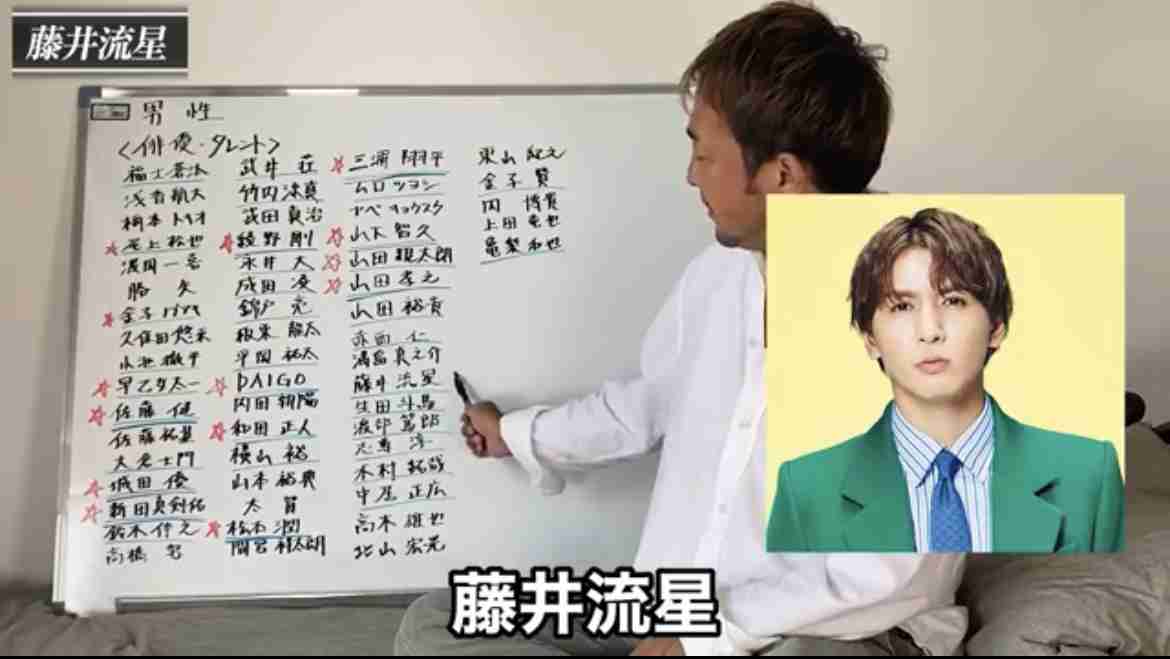 藤井流星
男 性
<俳優・タレント>
福士蒼汰
浅香航大
柄本トキオ
尾上松也
勝 矢
金子ノブアキ
久保田悠来
小池徹平
早乙女太一
佐藤 健
佐藤祐基
大倉士門
城田 優
新田真剣佑
鈴木伸之
高橋
武井 荘
竹内涼真
武田真治
綾野 剛
永井 大
成田 凌
錦戸 亮
平岡祐太
DAIGO
内田朝陽
和田正人
横山 裕
山本裕典
松本 潤
間宮祥太朗
三浦翔平
ムロツヨシ
山下智久
山田親太朗
山田孝之
山田裕貴
赤西 仁
満島真之介
藤井流星
生田斗馬
渡部篤郎
木村拓哉
中居正広
高木雄也
北山宏光
東山紀之
金子 賢
内 博貴
上田竜也
亀梨和也
藤井流星